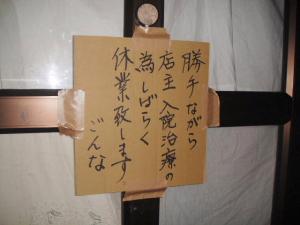 勝手ながら
店主入院治療の
為しばらく
休業致します
ごんな